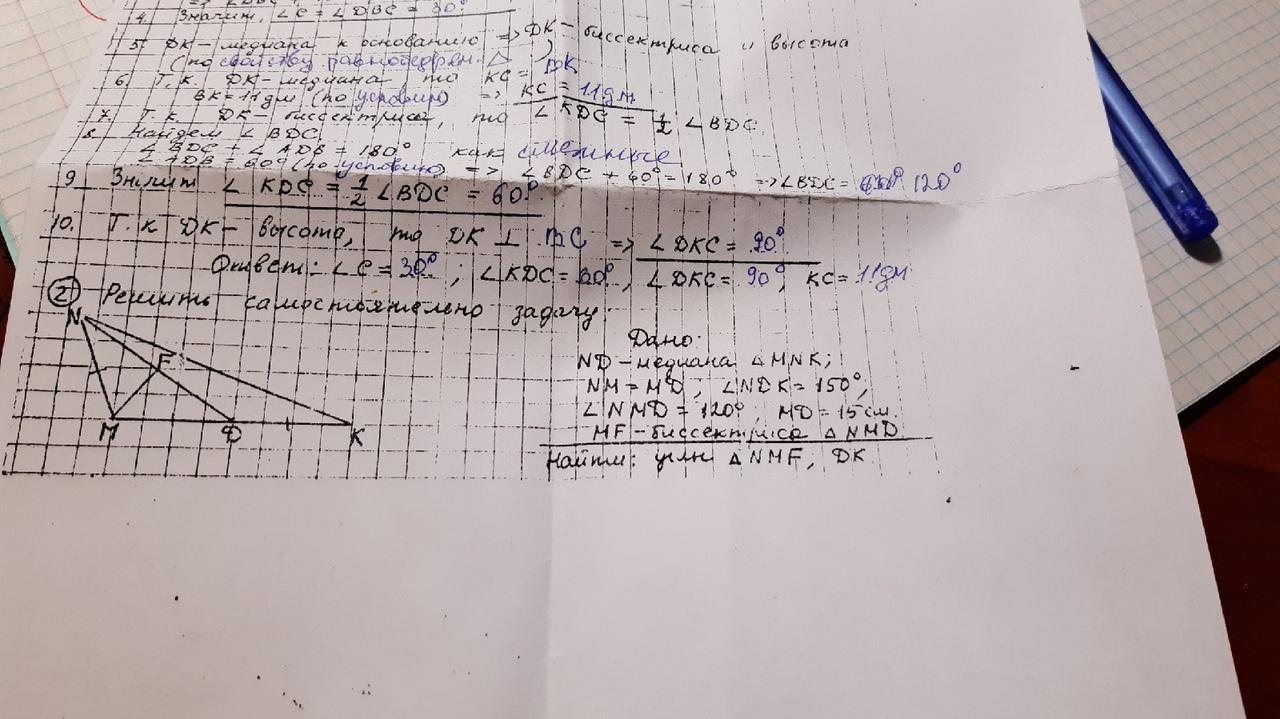 4. Значит, ∠C = ∠DBC = 30°
5. DK – медиана к основанию => DK – биссектриса и высота
(по свойству равнобедрен. △)
6. Т.к. DK – медиана, то KC = BK
BK = 11 дм (по условию) => KC = 11 дм
7. Т.к. DK – биссектриса, то ∠KDC = 1/2 ∠BDC
8. Найдем ∠BDC
∠BDC + ∠ADB = 180° как смежные
∠ADB = 60° (по условию) => ∠BDC + 60° = 180° => ∠BDC = 120°
9. Значит ∠KDC = 1/2 ∠BDC = 60°
10. Т.к DK – высота, то DK ⊥ BC => ∠DKC = 90°
Ответ: ∠C = 30°, ∠KDC = 60°, ∠DKC = 90°, KC = 11 дм
② Решить самостоятельно задачу:
N
F
M D K
Дано:
ND – медиана △MNK;
NM = MD; ∠NDK = 150°,
∠NMD = 120°, MD = 15 см.
MF – биссектриса △NMD
Найти: углы △NMF, DK